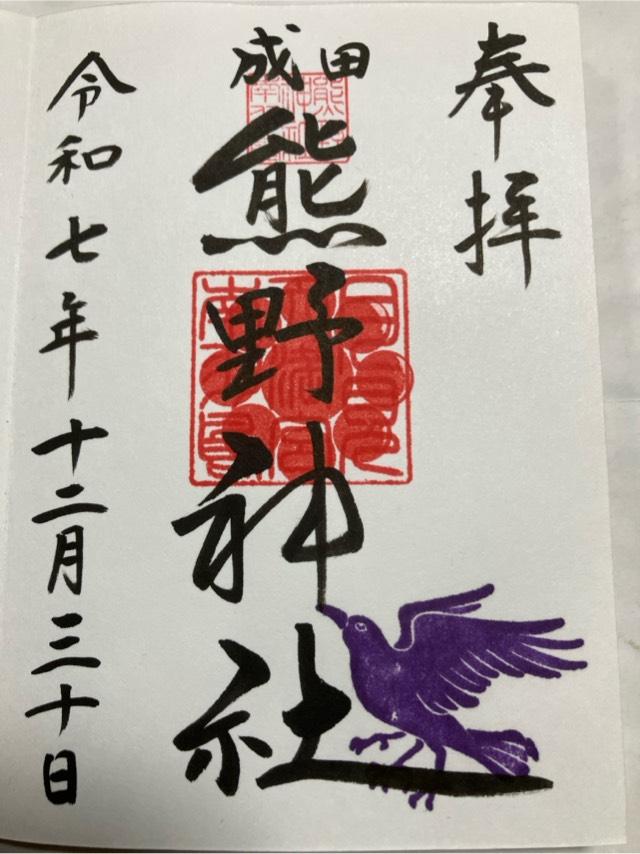 奉拝
成田
熊野神社
令和七年十二月三十日